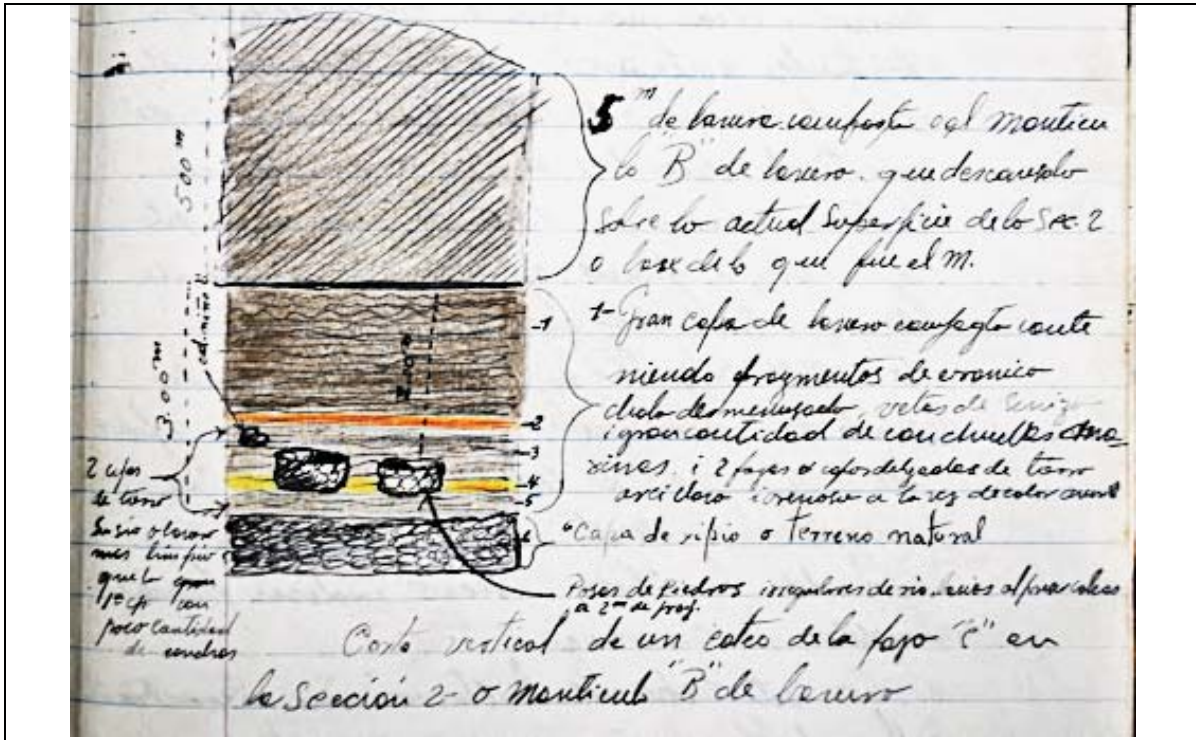 5 m de basura compacta del Montícu
lo "B" de basura. que descansaba
Sobre la actual Superficie de la Sec. 2
o base de lo que fue el M.
500 m
3.00 m
2.00
1
2
3
4
5
6
1- Gran capa de basura compacta conte
niendo fragmentos de
desmenusado, vetas de
i gran cantidad de conchuelas ma-
rinas. i 2 fajas o capas delgadas de tierra
arcillosa i arenosa a la vez de color
6 Capa de ripio o terreno natural
2 capas
de tierra
Sucia o basura
mas limpia
que la
1ª cp con
poca cantidad
de conchas
Posos de Piedras irregulares de rio
a 2 m de prof.
Corte vertical de un cateo de la faja "C" en
la Sección 2- o Montículo "B" de basura